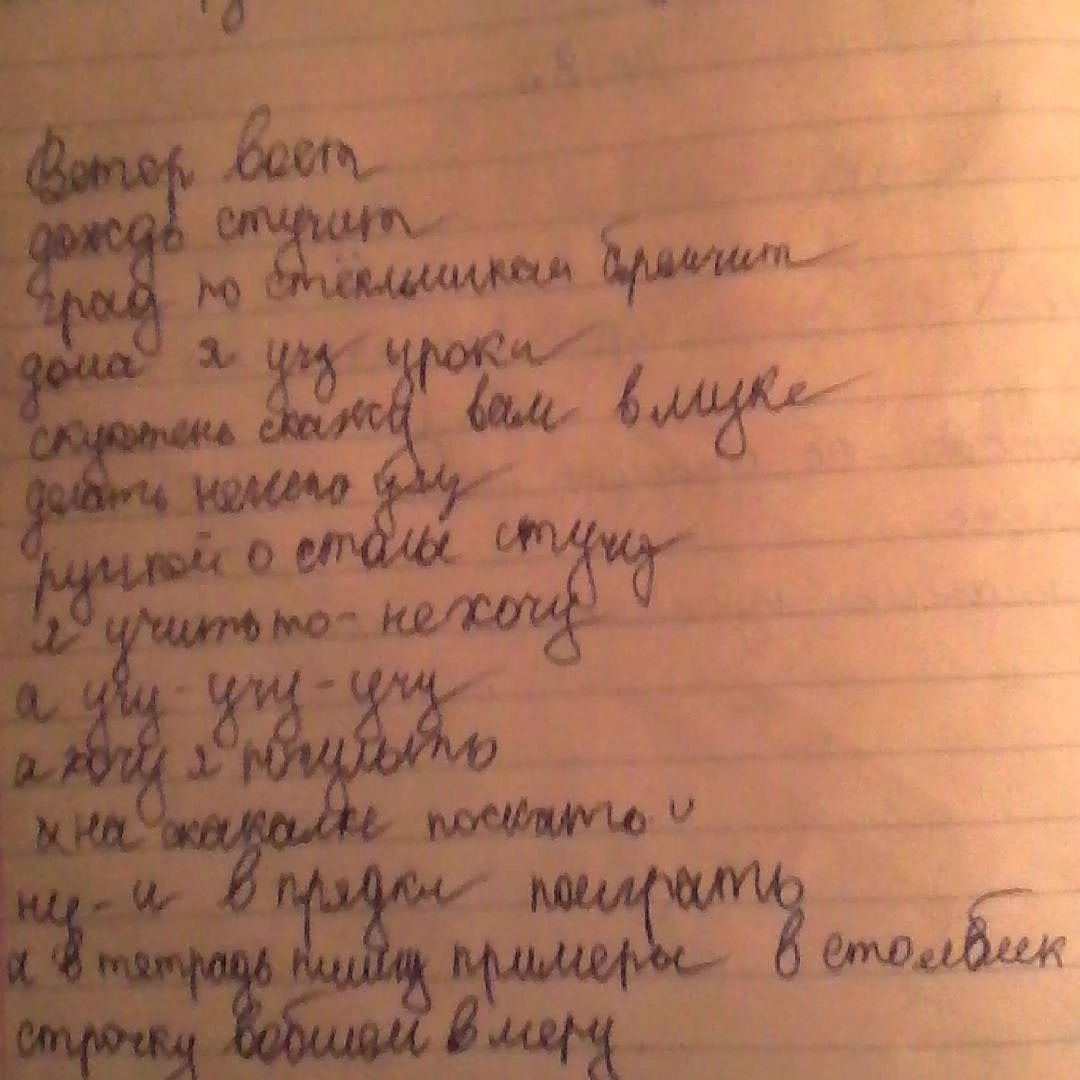 Ветер воет
дождь стучить
град по стёклышкам бренчит
дома я учу уроки
скукотень скажу вам в муке
делать нечего
ручкой о столы стучу
я учитьто-нехочу
а учу-учу-учу
а хочу я погулять
и на скакалке поскакать
ну-и в прядки поиграть
а в тетрадь пишу примеры в столбик
строчку вобшом в меру